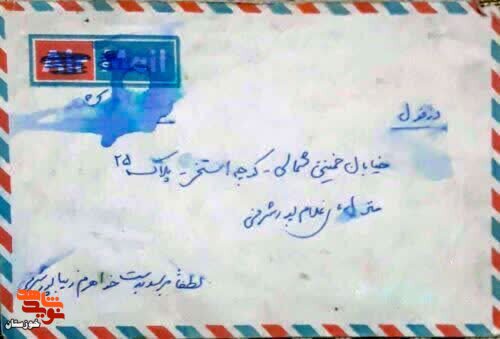 Air Mail
دزفول
خیابان خمینی شمالی - کوچه استخر - پلاک ۲۵
منزل غلام پورشرفی
لطفاً برسد بدست خواهرم زیبا پورشرفی
نوید شاهد
خوزستان